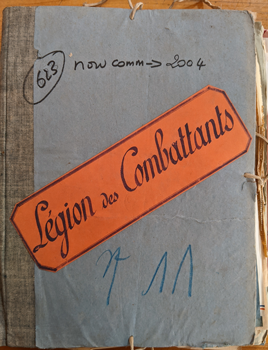 623
non comm → 2004
Légion des Combattants
n° 11